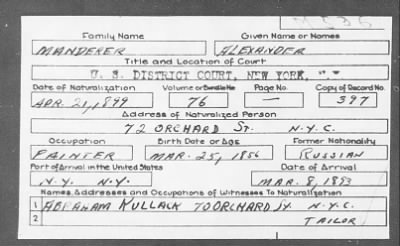 M 536
Family Name Given Name or Names
MANDERER ALEXANDER
Title and Location of Court
U. S. DISTRICT COURT, NEW YORK, N.Y.
Date of Naturalization Volume or Bundle No Page No. Copy of Record No.
APR. 21, 1899 76 — 397
Address of Naturalized Person
72 ORCHARD ST. N.Y.C.
Occupation Birth Date or Age Former Nationality
PAINTER MAR. 25, 1856 RUSSIAN
Port of Arrival in the United States Date of Arrival
N.Y. N.Y. MAR. 8, 1893
Names, Addresses and Occupations of Witnesses To Naturalization
1 ABRAHAM KULLACK 70 ORCHARD ST. N.Y.C.
2 TAILOR